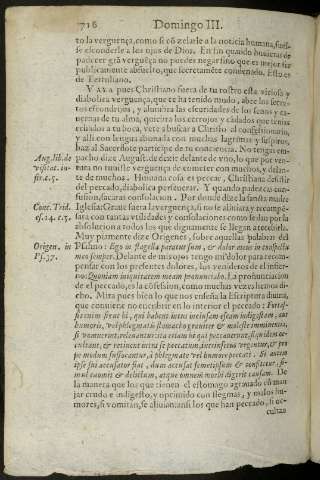 716 Domingo III.
to la verguença, como si cõ zelarle a la noticia humana, fuesse
esconderle a los ojos de Dios. En fin quando huuieras de
padecer grã verguēça no puedes negar sino que es mejor ser
publicamente absuelto, que secretamēte condenado. Esto es
de Tertuliano.
Vaya pues Christiano fuera de tu rostro esta viciosa y
diabolica verguença, que te ha tenido mudo, abre los secretos
escondrijos, y alumbra las escuridades de los senos y cauernas
de tu alma, quita los cerrojos y cãdados que tenias
echados a tu boca, vete a buscar a Christo al confessionario,
y alli con lengua abonada con muchas lagrimas y suspiros,
haz al Sacerdote participe de tu conciencia. No tengas empacho
Aug. lib. de dize August. de dezir delante de vno, lo que por ventura
visitat. in- no tuuiste verguença de cometer con muchos, y delante
fir. c. 5. de muchos. Humana cosa es pecar, Christiana desistir
del pecado, diabolica perseuerar. Y quando padezcas confusion,
sacaras consolacion. Por donde dize la santa madre
Conc. Trid. Iglesia: Graue fuera la verguença, si no se aliuiara y recompēsara
ses. 14. c. 5. con tantas vtilidades y consolaciones como se dan por la
absolucion a todos los que dignamente se llegan a recebirla.
Muy piamente dize Origenes, sobre aquellas palabras del
Origen. in Psalmo: Ego in flagella paratus sum, & dolor meus in conspectu
Ps. 37. meo semper. Delante de mis ojos tengo mi dolor para recompensar
con los presentes dolores, los venideros del infierno:
Quoniam iniquitatem meam pronuntiabo. La pronunciacion
de el pecado, es la cõfession, como muchas vezes hemos dicho.
Mira pues bien lo que nos enseña la Escritura diuina,
que conuiene no encubrir en lo interior el pecado: Fortassis
enim sicut hi, qui habent intus inclusam escam indigestam, aut
humoris, vel phlegmatis stomacho grauiter & molestè imminentis,
si vomuerint, releuantur: ita etiam hi qui peccauerunt, si quidem occultant,
& retinent intra se peccatum, intrinsecus vrgentur, & propemodum
suffocantur, à phlegmate vel humore peccati. Si autem
ipse sui accusator fiat, dum accusat semetipsum & confitetur, simul
euomit & delictum, atque omnem morbi digerit causam. De
la manera que los que tienen el estomago agrauado cõ manjar
crudo e indigesto, y oprimido con flegmas, y malos humores,
si vomitan, se aliuian: assi los que han pecado, si ocultan